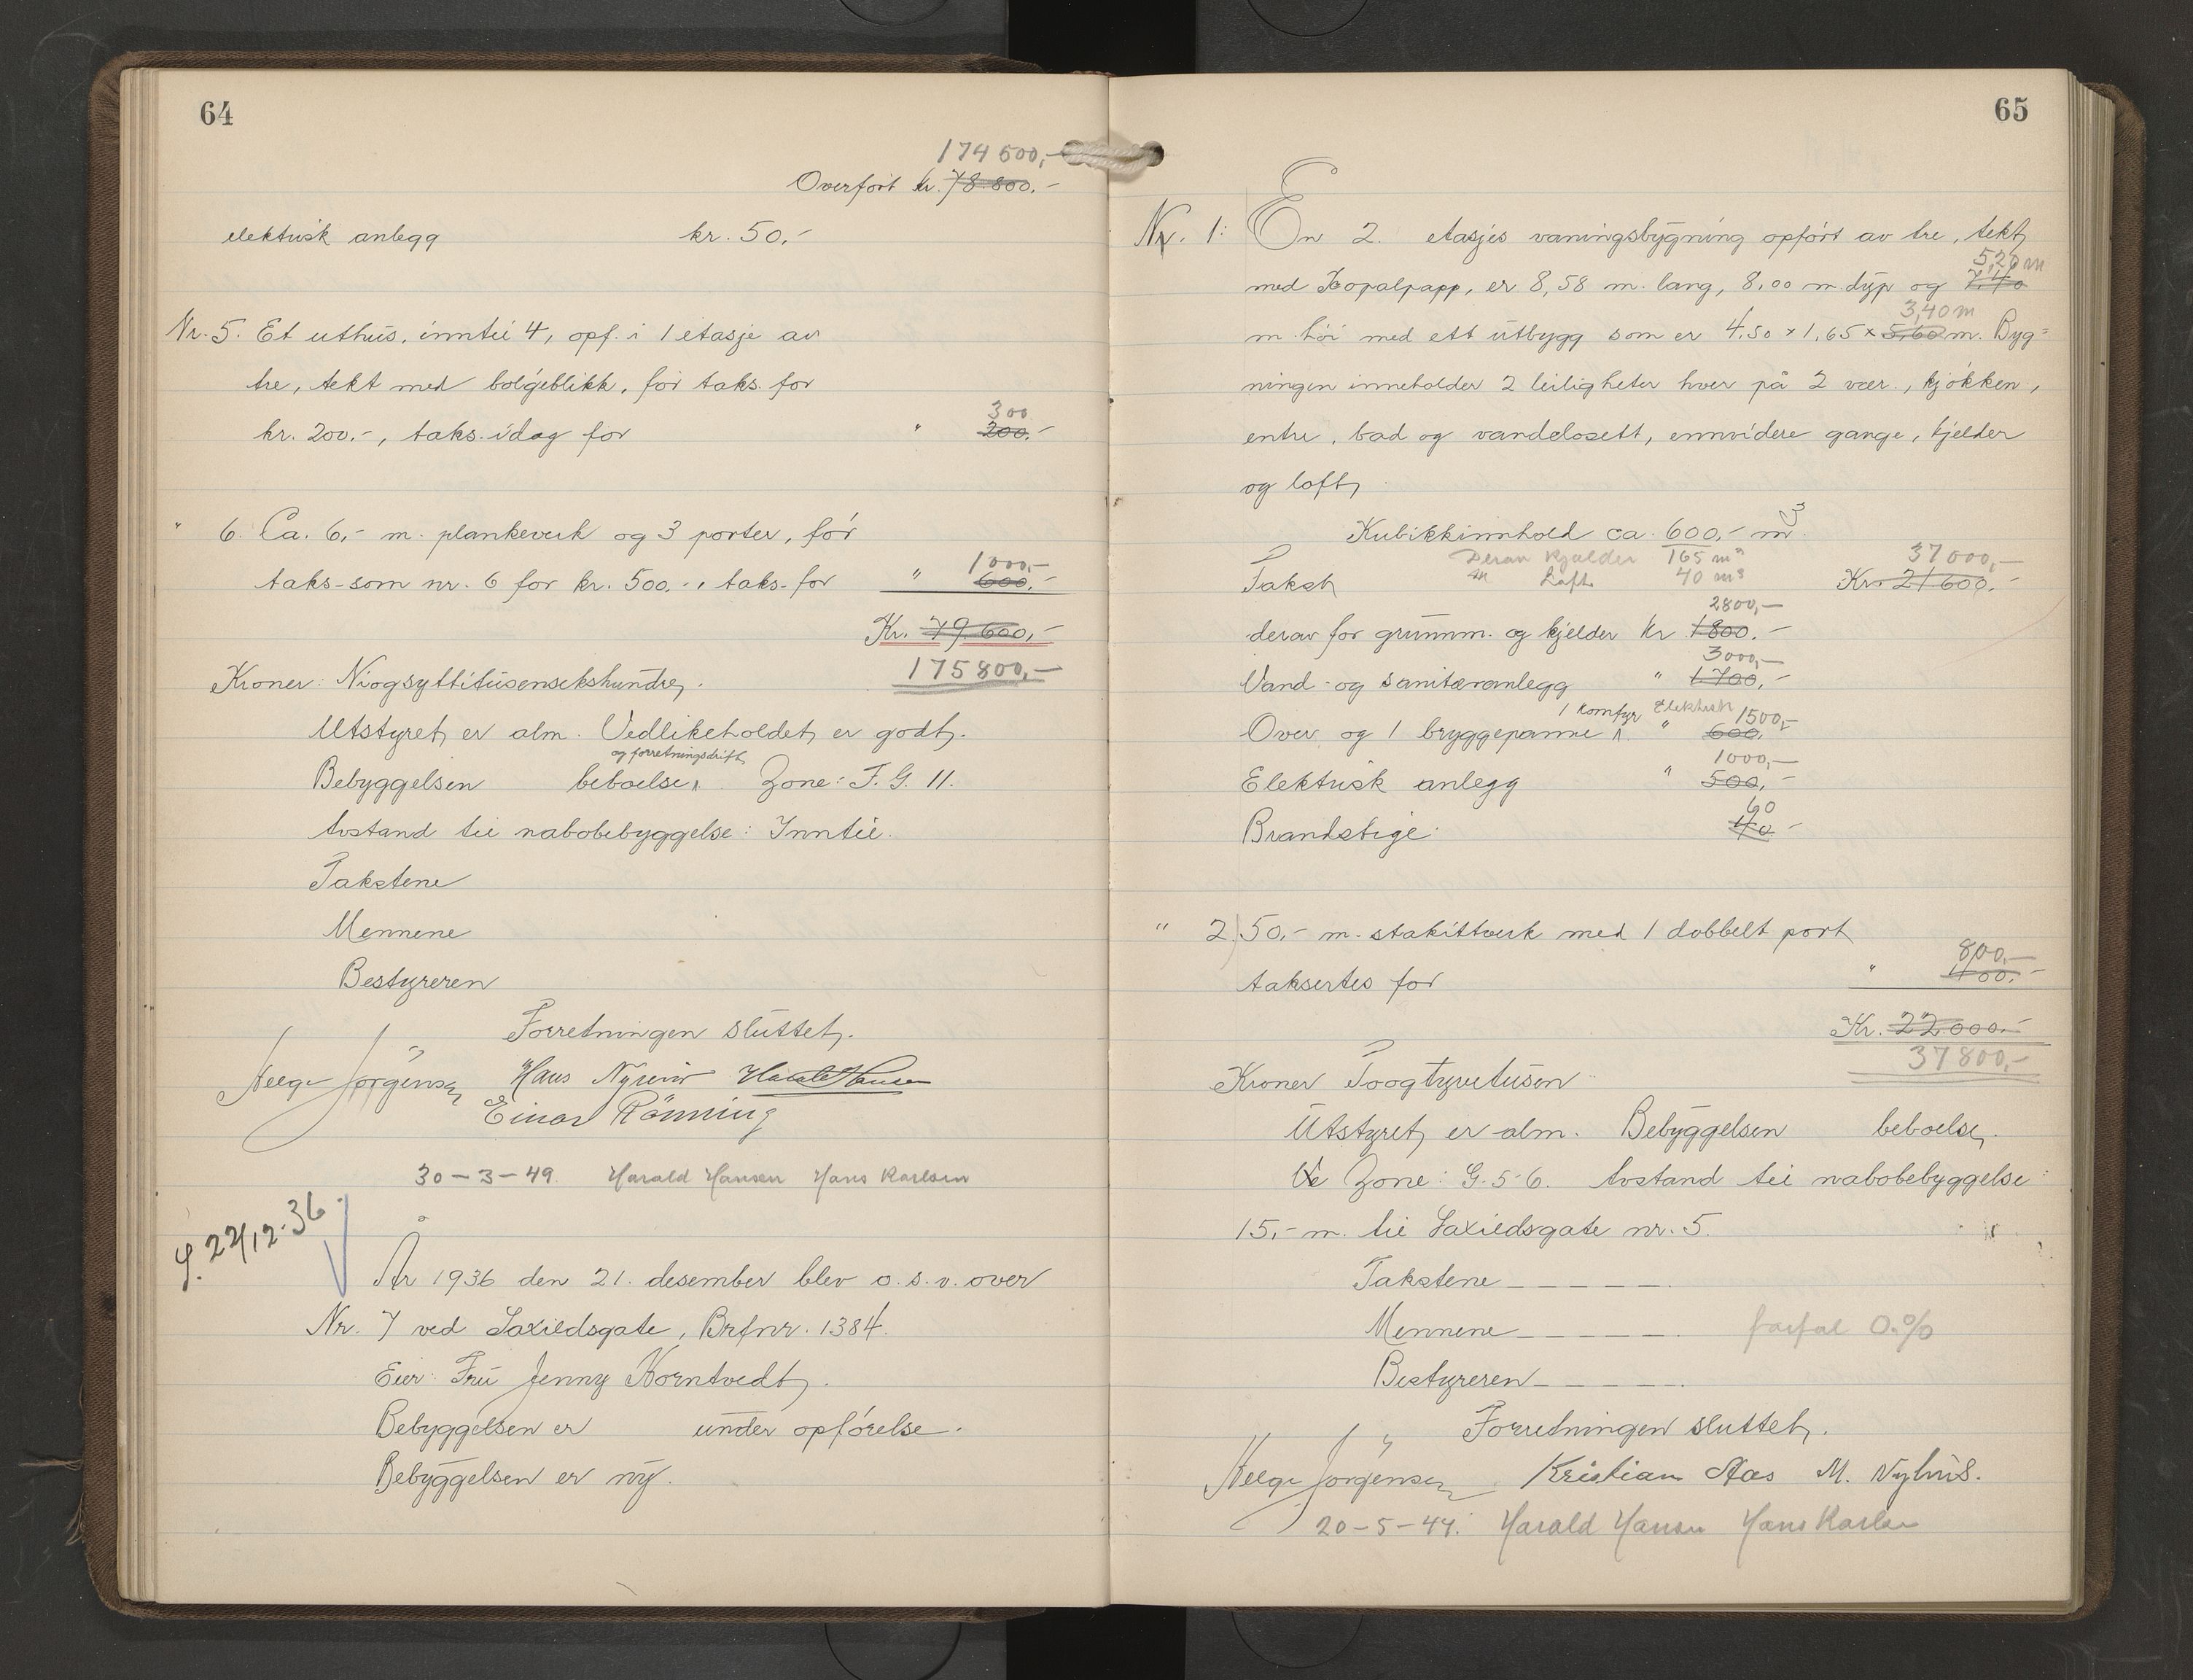 64
174 500,-
Overført kr. 78.800.-
elektrisk anlegg kr. 50.-
Nr. 5. Et uthus, inntil 4, opf. i 1 etasje av
tre, tekt med bølgeblikk, før taks. for
300
kr. 200.-, taks. idag for " 200.-
" 6. Ca. 6,- m. plankeverk og 3 porter, før
1000,-
taks. som nr. 6 for kr. 500.-, taks. for " 600.-
Kr. 79.600,-
175800,-
Kroner: Niogsyttitusensekshundre.
Utstyret er alm. Vedlikeholdet er godt.
og forretningsdrift
Bebyggelsen beboelse Zone: F. G. 11.
Avstand til nabobebyggelse: Inntil.
Takstene
Mennene
Bestyreren
Forretningen sluttet.
Helge Jørgensen Hans Harald Hansen
Einar Rönning
30-3-49. Harald Hansen Hans Karlsen
22/12-36
År 1936 den 21. desember blev o.s.v. over
Nr. 7 ved Saxildsgate, Brfnr. 1384.
Eier: Fru Jenny Korntvedt.
Bebyggelsen er under opførelse.
Bebyggelsen er ny.
65
Nr. 1: En 2. etasjes vaningsbygning opført av tre, tekt
5,20 m
med Kopalpapp, er 8,58 m. lang, 8,00 m. dyp og 7.40
3,40 m
m. høi med ett utbygg som er 4,50 x 1,65 x 5,60 m. Byg=
ningen inneholder 2 leiligheter hver på 2 vær., kjøkken,
entre, bad og vandclosett, ennvidere gange, kjelder
og loft,
Kubikkinnhold ca. 600,- m3
Derav Kjælder 165 m³ 37000,-
Takst Loft 40 m³ Kr. 21600.-
2800,-
derav for grunnm. og kjelder kr 1800.-
3000,-
Vand- og sanitæranlegg " 1.700,-
1 Komfyr Elektrisk 1500,-
Ovner og 1 bryggepanne " 600,-
1000,-
Elektrisk anlegg " 500,-
60
Brandstige: 40 -
" 2) 50,- m. stakittverk med 1 dobbelt port
800,-
taksertes for " 400.-
Kr. 22.000.-
37800,-
Kroner Toogtyvetusen
Utstyret er alm. Bebyggelsen beboelse.
Zone: G. 5-6. Avstand til nabobebyggelse:
15,- m. til Saxildsgate nr. 5.
Takstene - - - - -
Mennene - - - - - forfal 0.%
Bestyreren - - - - -
Forretningen sluttet.
Helge Jørgensen Kristian Aas M. Nyhus.
20-5-44. Harald Hansen Hans Karlsen